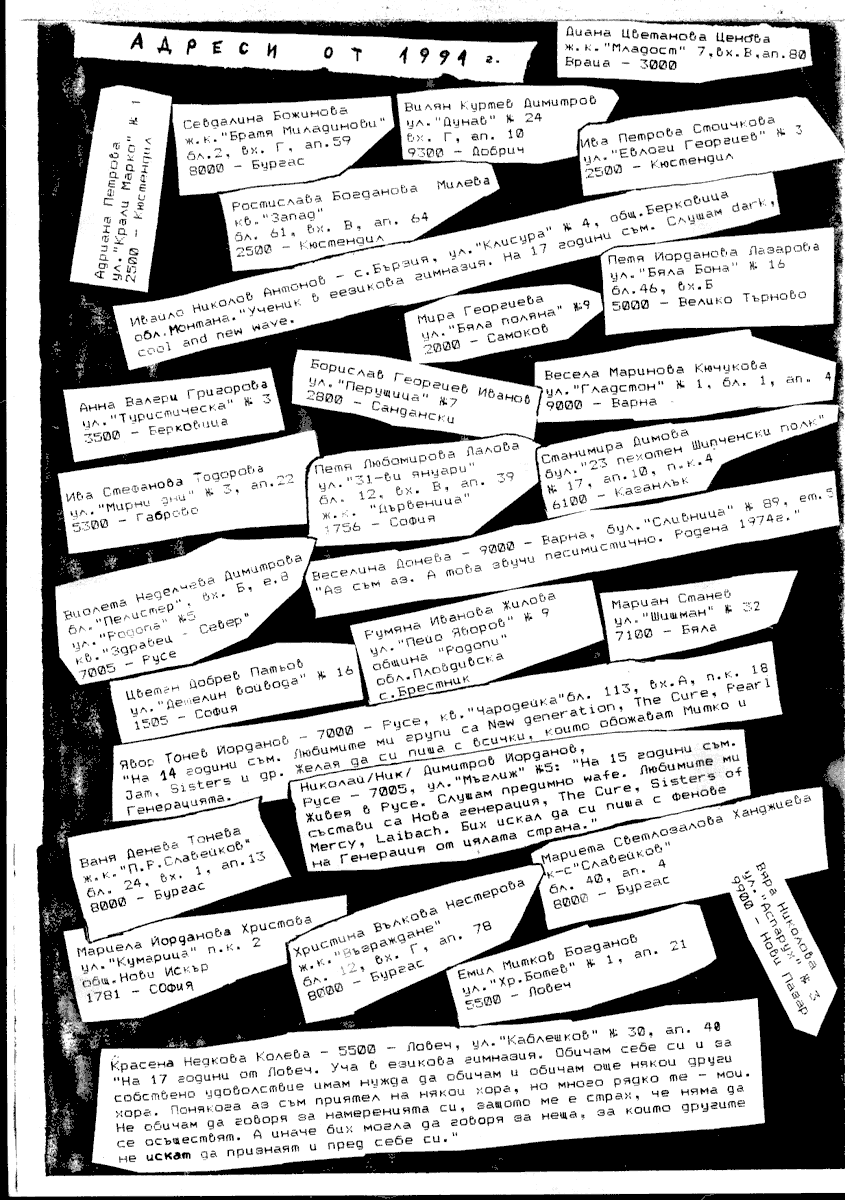 АДРЕСИ ОТ 1991 г.
Диана Цветанова Ценова
ж.к."Младост" 7,вх.В,ап.80
Враца - 3000
Адриана Петрова
ул."Крали Марко" № 1
2500 - Кюстендил
Севдалина Божинова
ж.к."Братя Миладинови"
бл.2, вх. Г, ап.59
8000 - Бургас
Вилян Куртев Димитров
ул."Дунав" № 24
вх. Г, ап. 10
9300 - Добрич
Ива Петрова Стоичкова
ул."Евлоги Георгиев" № 3
2500 - Кюстендил
Ростислава Богданова Милева
кв."Запад"
бл. 61, вх. В, ап. 64
2500 - Кюстендил
Ивайло Николов Антонов - с.Бързия, ул."Клисура" № 4, общ.Берковица
обл.Монтана."Ученик в еезикова гимназия. На 17 години съм. Слушам dark,
cool and new wave.
Петя Йорданова Лазарова
ул."Бяла Бона" № 16
бл.46, вх.Б
5000 - Велико Търново
Мира Георгиева
ул."Бяла поляна" №9
2000 - Самоков
Анна Валери Григорова
ул."Туристическа" № 3
3500 - Берковица
Борислав Георгиев Иванов
ул."Перущица" №7
2800 - Сандански
Весела Маринова Кючукова
ул."Гладстон" № 1, бл. 1, ап. 4
9000 - Варна
Ива Стефанова Тодорова
ул."Мирни дни" № 3, ап.22
5300 - Габрово
Петя Любомирова Лалова
ул."31-ви януари"
бл. 12, вх. В, ап. 39
ж.к. "Дървеница"
1756 - София
Станимира Димова
бул."23 пехотен Шипченски полк"
№ 17, ап.10, п.к.4
6100 - Казанлък
Виолета Неделчева Димитрова
бл."Пелистер", вх. Б, е.8
ул."Родопа" №5
кв."Здравец - Север"
7005 - Русе
Веселина Донева - 9000 - Варна, бул."Сливница" № 89, ет.5
"Аз съм аз. А това звучи песимистично. Родена 1974г."
Румяна Иванова Жилова
ул."Пейо Яворов" № 9
община "Родопи"
обл.Пловдивска
с.Брестник
Мариан Станев
ул."Шишман" № 32
7100 - Бяла
Цветан Добрев Патьов
ул."Детелин войвода" № 16
1505 - София
Явор Тонев Йорданов - 7000 - Русе, кв."Чародейка"бл. 113, вх.А, п.к. 18
"На 14 години съм. Любимите ми групи са New generation, The Cure, Pearl
Jam, Sisters и др. Желая да си пиша с всички, които обожават Митко и
Генерацията.
Николай/Ник/ Димитров Йорданов,
Русе - 7005, ул."Мъглиж" №5: "На 15 години съм.
Живея в Русе. Слушам предимно wafe. Любимите ми
състави са Нова генерация, The Cure, Sisters of
Mercy, Laibach. Бих искал да си пиша с фенове
на Генерация от цялата страна."
Ваня Денева Тонева
ж.к."П.Р.Славейков"
бл. 24, вх. 1, ап.13
8000 - Бургас
Мариета Светлозалова Ханджиева
к-с"Славейков"
бл. 40, ап. 4
8000 - Бургас
Вяра Николова
ул."Аспарух" № 3
9900 - Нови Пазар
Мариела Йорданова Христова
ул."Кумарица" п.к. 2
общ.Нови Искър
1781 - София
Христина Вълкова Нестерова
ж.к."Възраждане"
бл. 12, вх. Г, ап. 78
8000 - Бургас
Емил Митков Богданов
ул."Хр.Ботев" № 1, ап. 21
5500 - Ловеч
Красена Недкова Колева - 5500 - Ловеч, ул."Каблешков" № 30, ап. 40
"На 17 години от Ловеч. Уча в езикова гимназия. Обичам себе си и за
собствено удоволствие имам нужда да обичам и обичам още някои други
хора. Понякога аз съм приятел на някои хора, но много рядко те - мои.
Не обичам да говоря за намеренията си, защото ме е страх, че няма да
се осъществят. А иначе бих могла да говоря за неща, за които другите
не искат да признаят и пред себе си."